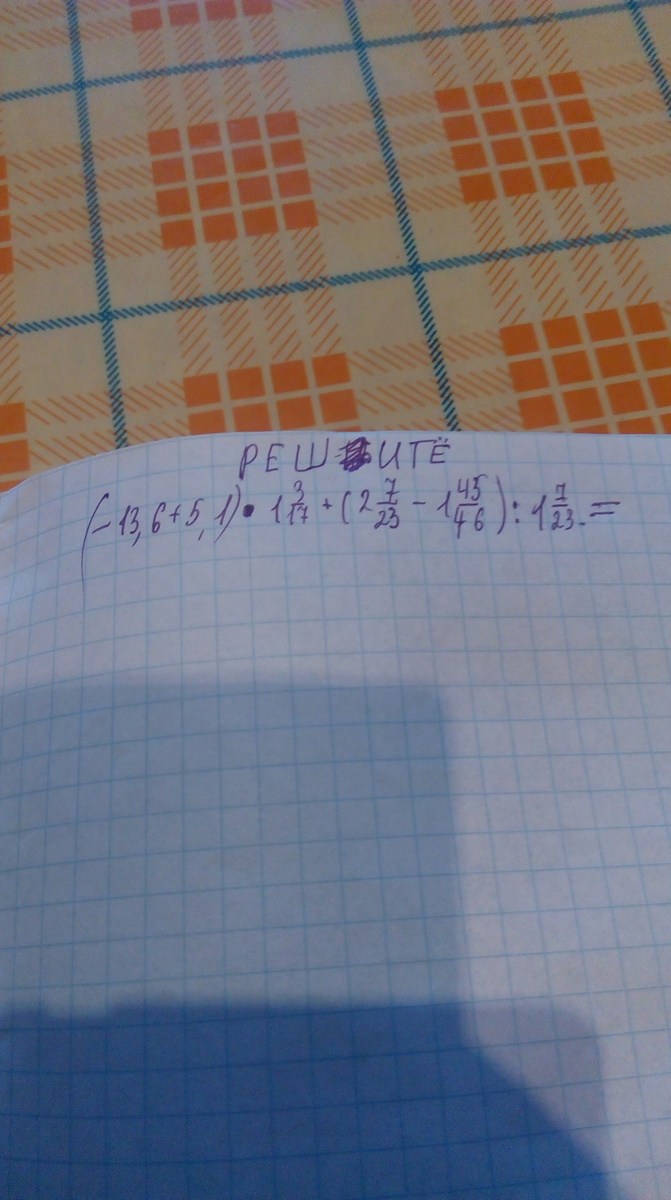 РЕШИТЁ
(-13,6+5,1)•1 3/17+(2 7/23-1 45/46):1 7/23.=